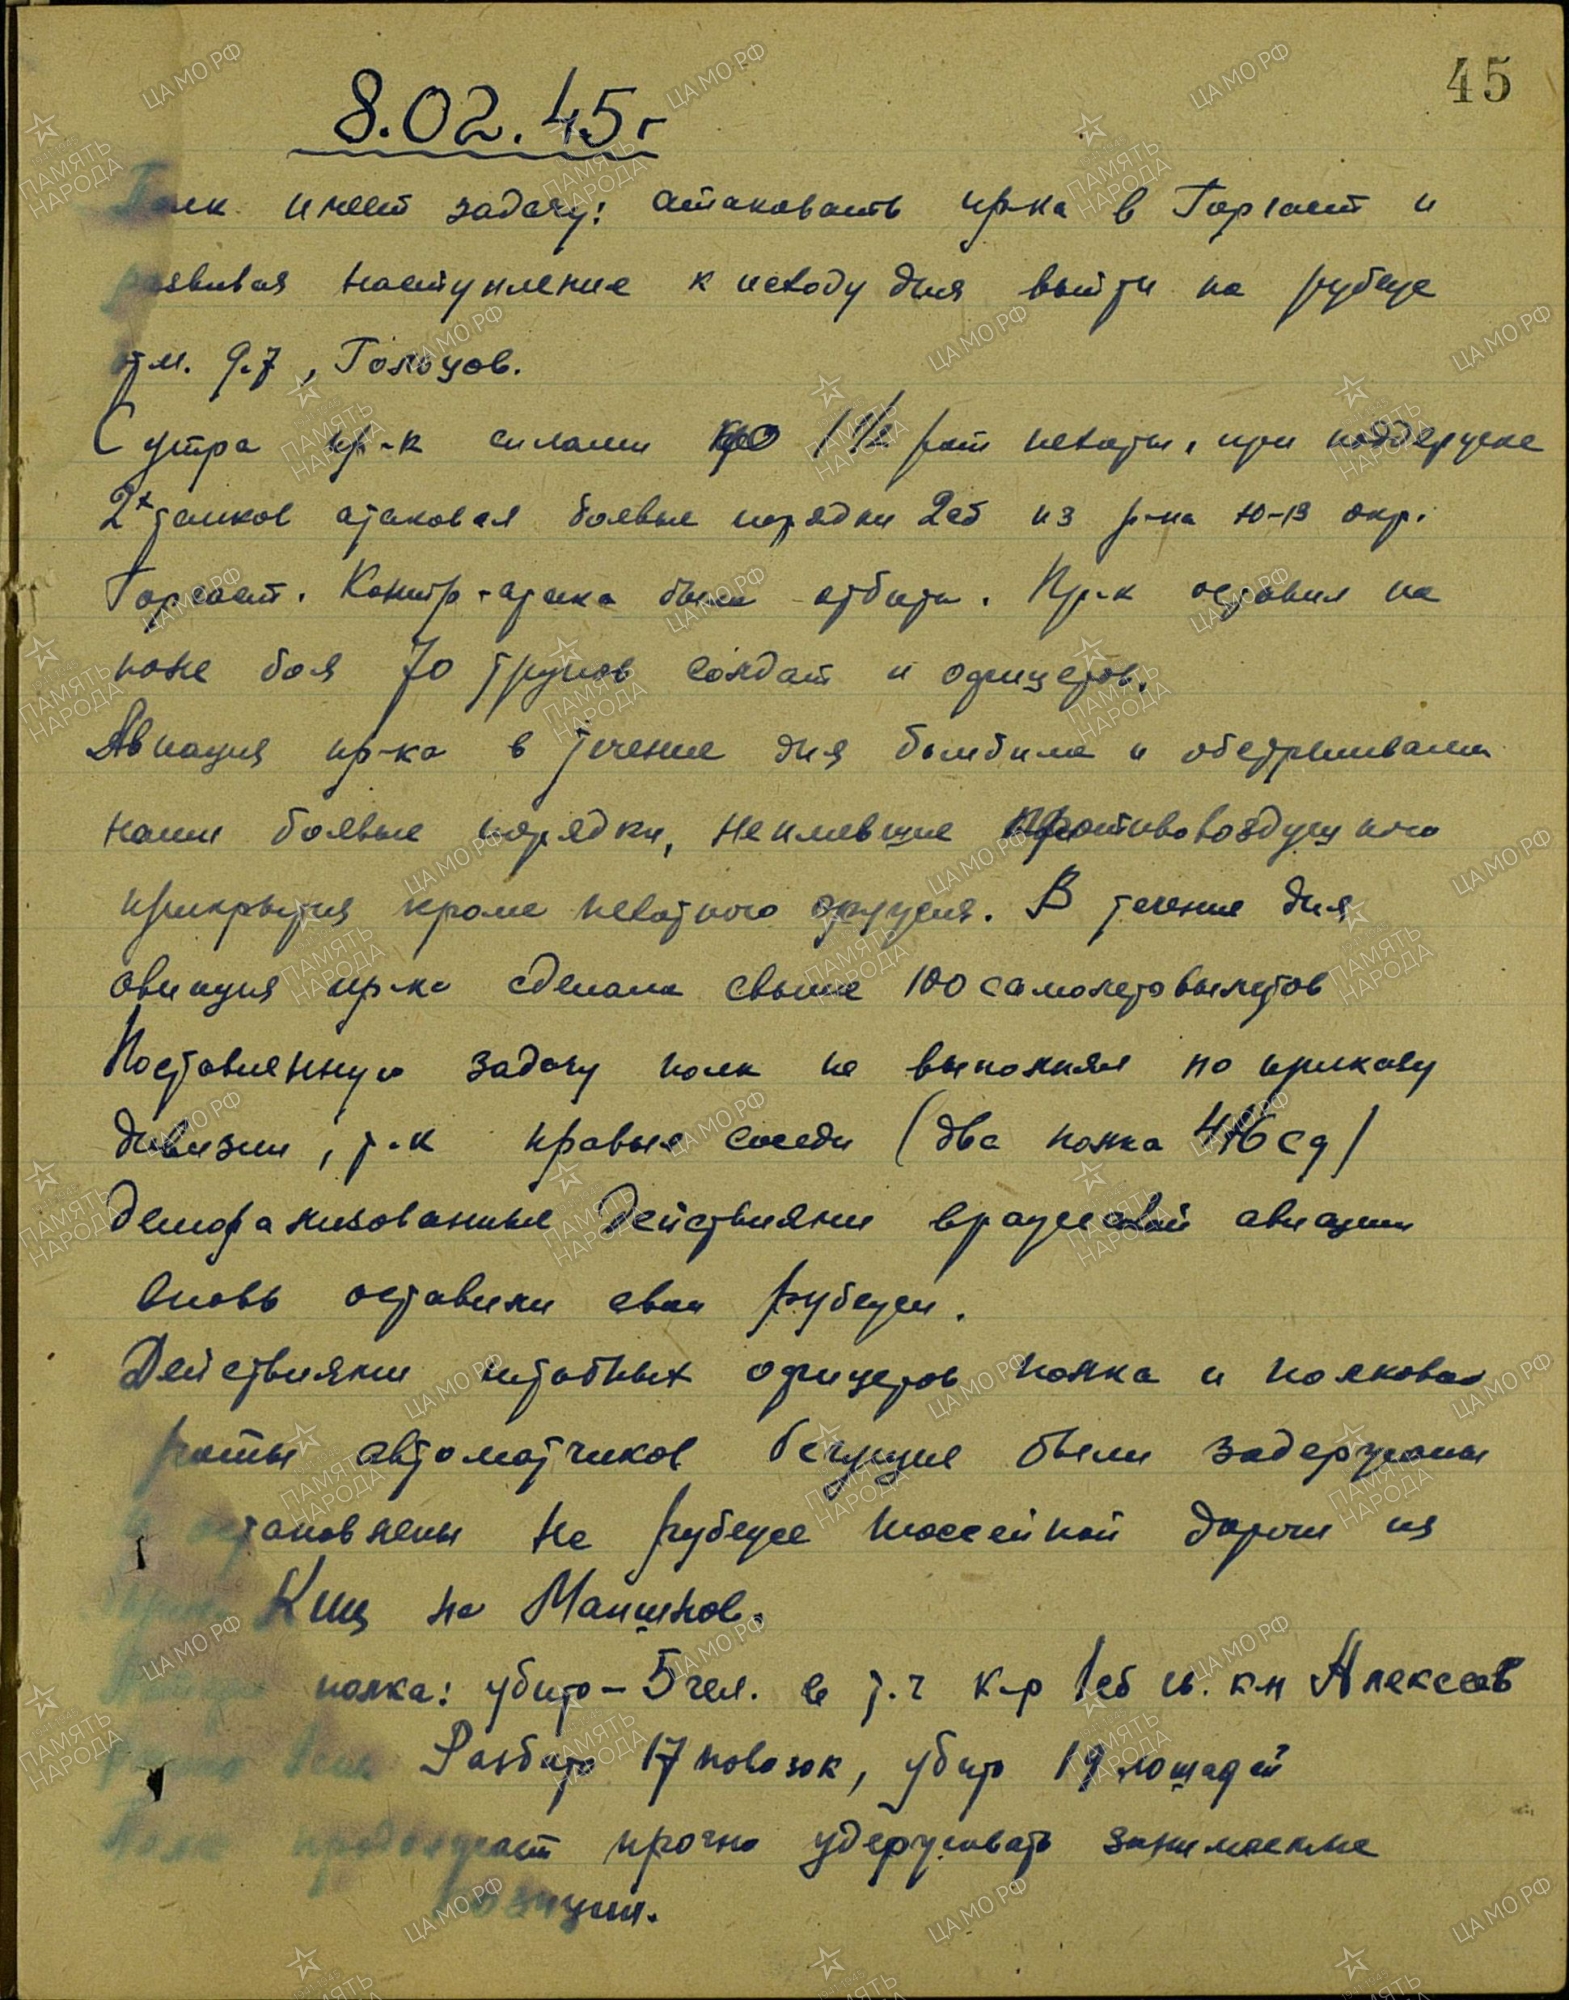 45
8.02.45г
Полк имеет задачу: атаковать пр-ка в Горгаст и
развивая наступление к исходу дня выйти на рубеж
отм. 9.7, Гольцов.
С утра пр-к силами до 1 1/2 рот пехоты, при поддержке
2х танков атаковал боевые порядки 2сб из р-на Ю-В окр.
Горгаст. Контр-атака была отбита. Пр-к оставил на
поле боя 70 трупов солдат и офицеров.
Авиация пр-ка в течение дня бомбила и обстреливала
наши боевые порядки, неимевшие противовоздушного
прикрытия кроме пехотного оружия. В течение дня
авиация пр-ка сделала свыше 100 самолетовылетов
Поставленную задачу полк не выполнял по приказу
дивизии, т.к правые соседи (два полка 416 сд)
деморализованные действиями вражеской авиации
вновь оставили свои рубежи.
Действиями штабных офицеров полка и полковой
роты автоматчиков бегущие были задержаны
и остановлены на рубеже шоссейной дороги из
Киц на Маншнов.
полка: убито - 5 чел. в т.ч к-р 1сб гв. к-н Алексеев
Разбито 17 повозок, убито 19 лошадей
Полк продолжает прочно удерживать занимаемые
позиции.